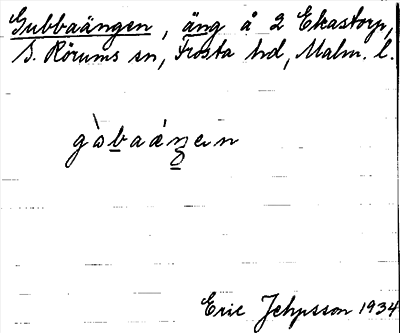 Gubbaängen, äng å 2 Ekastorp,
S. Rörums sn, Frosta hd, Malm. l.
Eric Jehpsson 1934